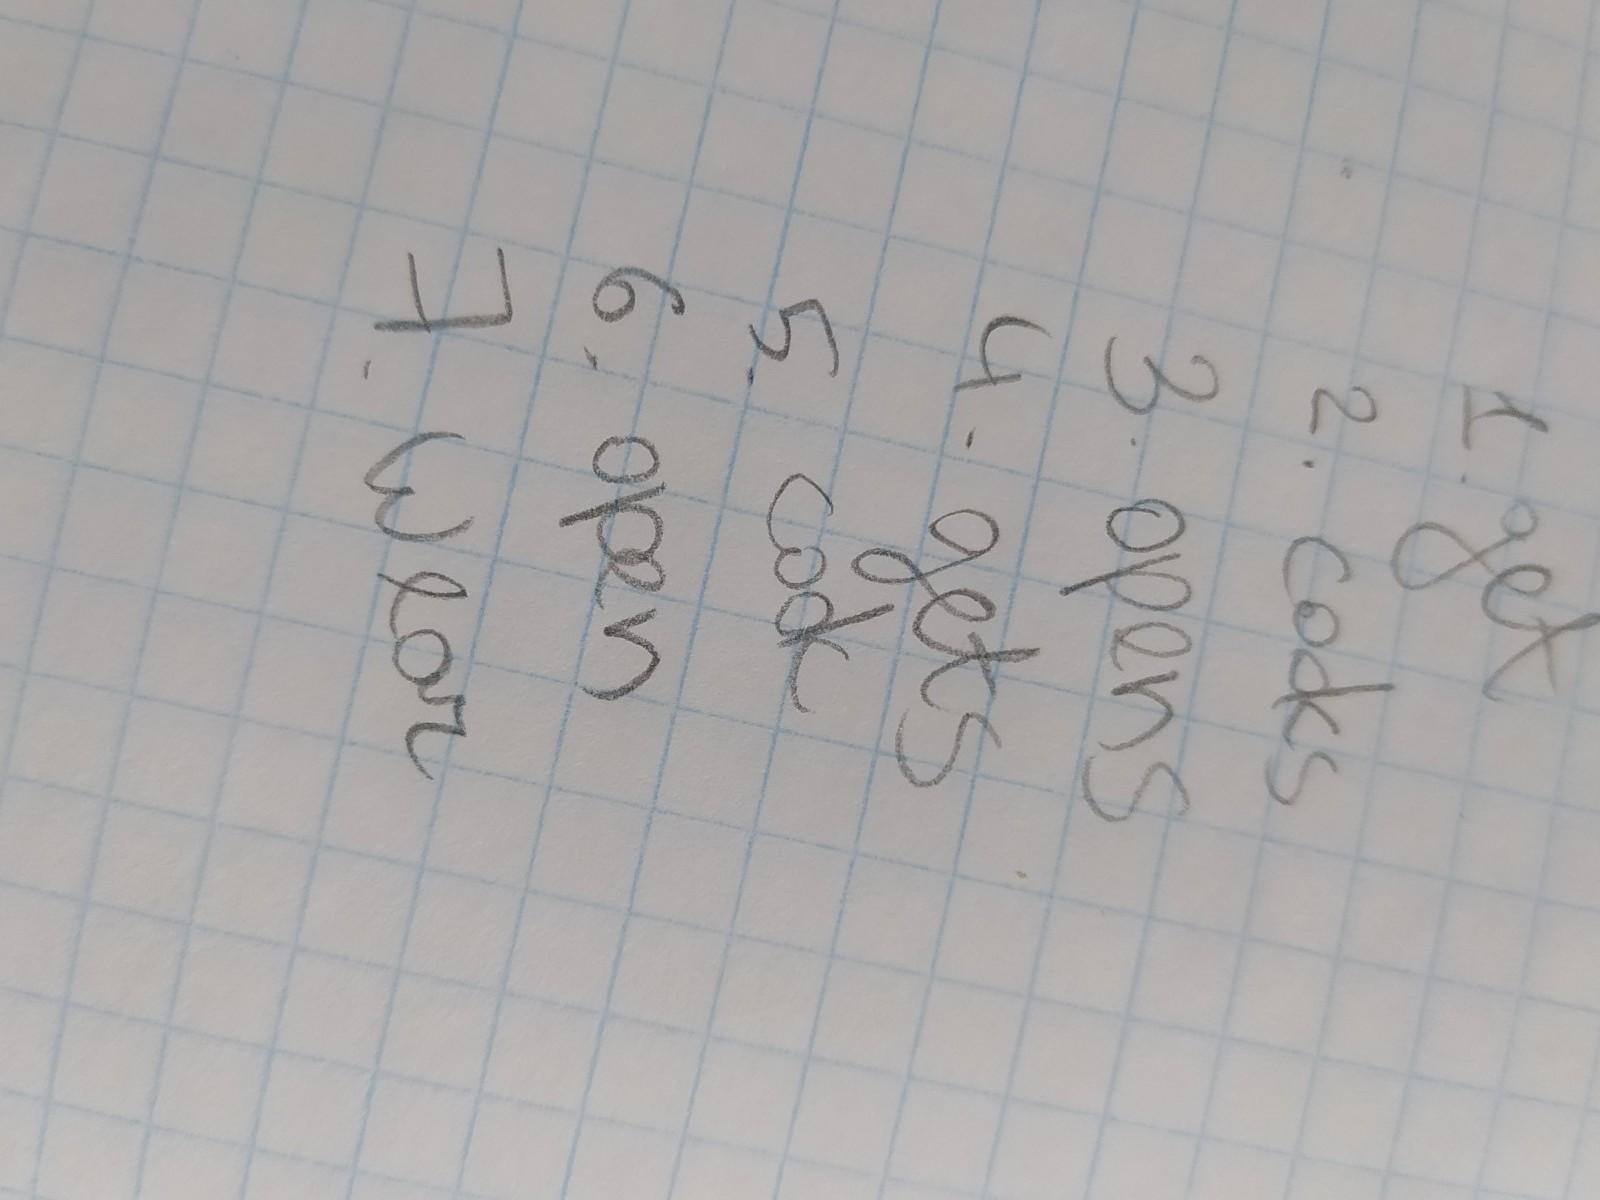 1. get
2. cooks
3. opens
4. gets
5. cook
6. open
7. wear